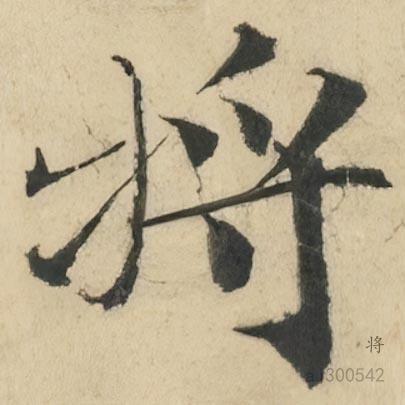 将
将
a1300542